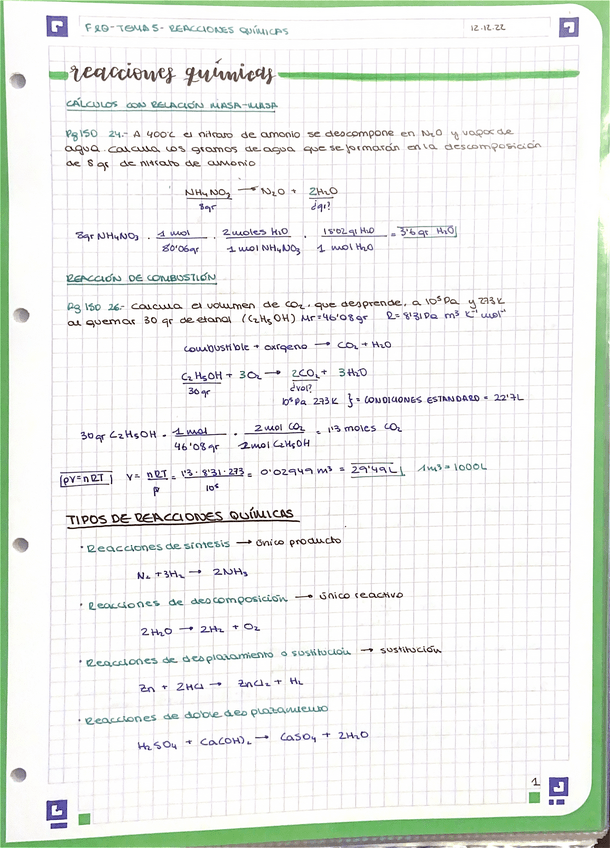 FRQ-TEMA 5- REACCIONES QUÍMICAS
12.12.22
reacciones químicas
CÁLCULOS CON RELACIÓN MASA-MASA
Pg 150 24.- A 400ºC el nitrato de amonio se descompone en N₂O y vapor de
agua. Calcula los gramos de agua que se formarán en la descomposición
de 8 gr de nitrato de amonio
NH₄NO₃ → N₂O + 2H₂O
8gr ¿gr?
8gr NH₄NO₃ · 1 mol / 80'06gr · 2 moles H₂O / 1 mol NH₄NO₃ · 18'02 gr H₂O / 1 mol H₂O = 3'6 gr H₂O
REACCIÓN DE COMBUSTIÓN
Pg 150 26.- Calcula el volumen de CO₂, que desprende, a 10⁵ Pa y 273K
al quemar 30 gr de etanol (C₂H₅OH) Mr=46'08gr R=8'31 Pa m³ K⁻¹ mol⁻¹
combustible + oxígeno → CO₂ + H₂O
C₂H₅OH + 3O₂ → 2CO₂ + 3H₂O
30gr ¿vol?
10⁵Pa 273K } = CONDICIONES ESTANDARD = 22'7L
30gr C₂H₅OH · 1 mol / 46'08gr · 2 mol CO₂ / 1 mol C₂H₅OH = 1'3 moles CO₂
PV=nRT V = nRT / P = 1'3·8'31·273 / 10⁵ = 0'02949 m³ = 29'49L 1m³=1000L
TIPOS DE REACCIONES QUÍMICAS
· Reacciones de síntesis → único producto
N₂ + 3H₂ → 2NH₃
· Reacciones de descomposición → único reactivo
2H₂O → 2H₂ + O₂
· Reacciones de desplazamiento o sustitución → sustitución
Zn + 2HCl → ZnCl₂ + H₂
· Reacciones de doble desplazamiento
H₂SO₄ + Ca(OH)₂ → CaSO₄ + 2H₂O
1